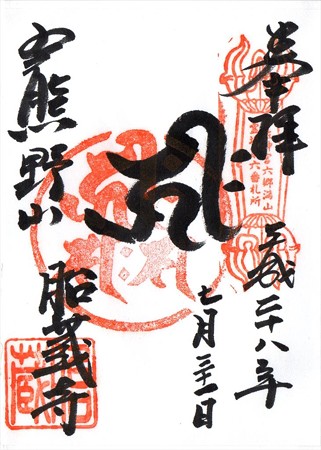 奉拝
六郷満山
六番札所
平成二十八年
七月二十一日
今熊野山
胎蔵寺